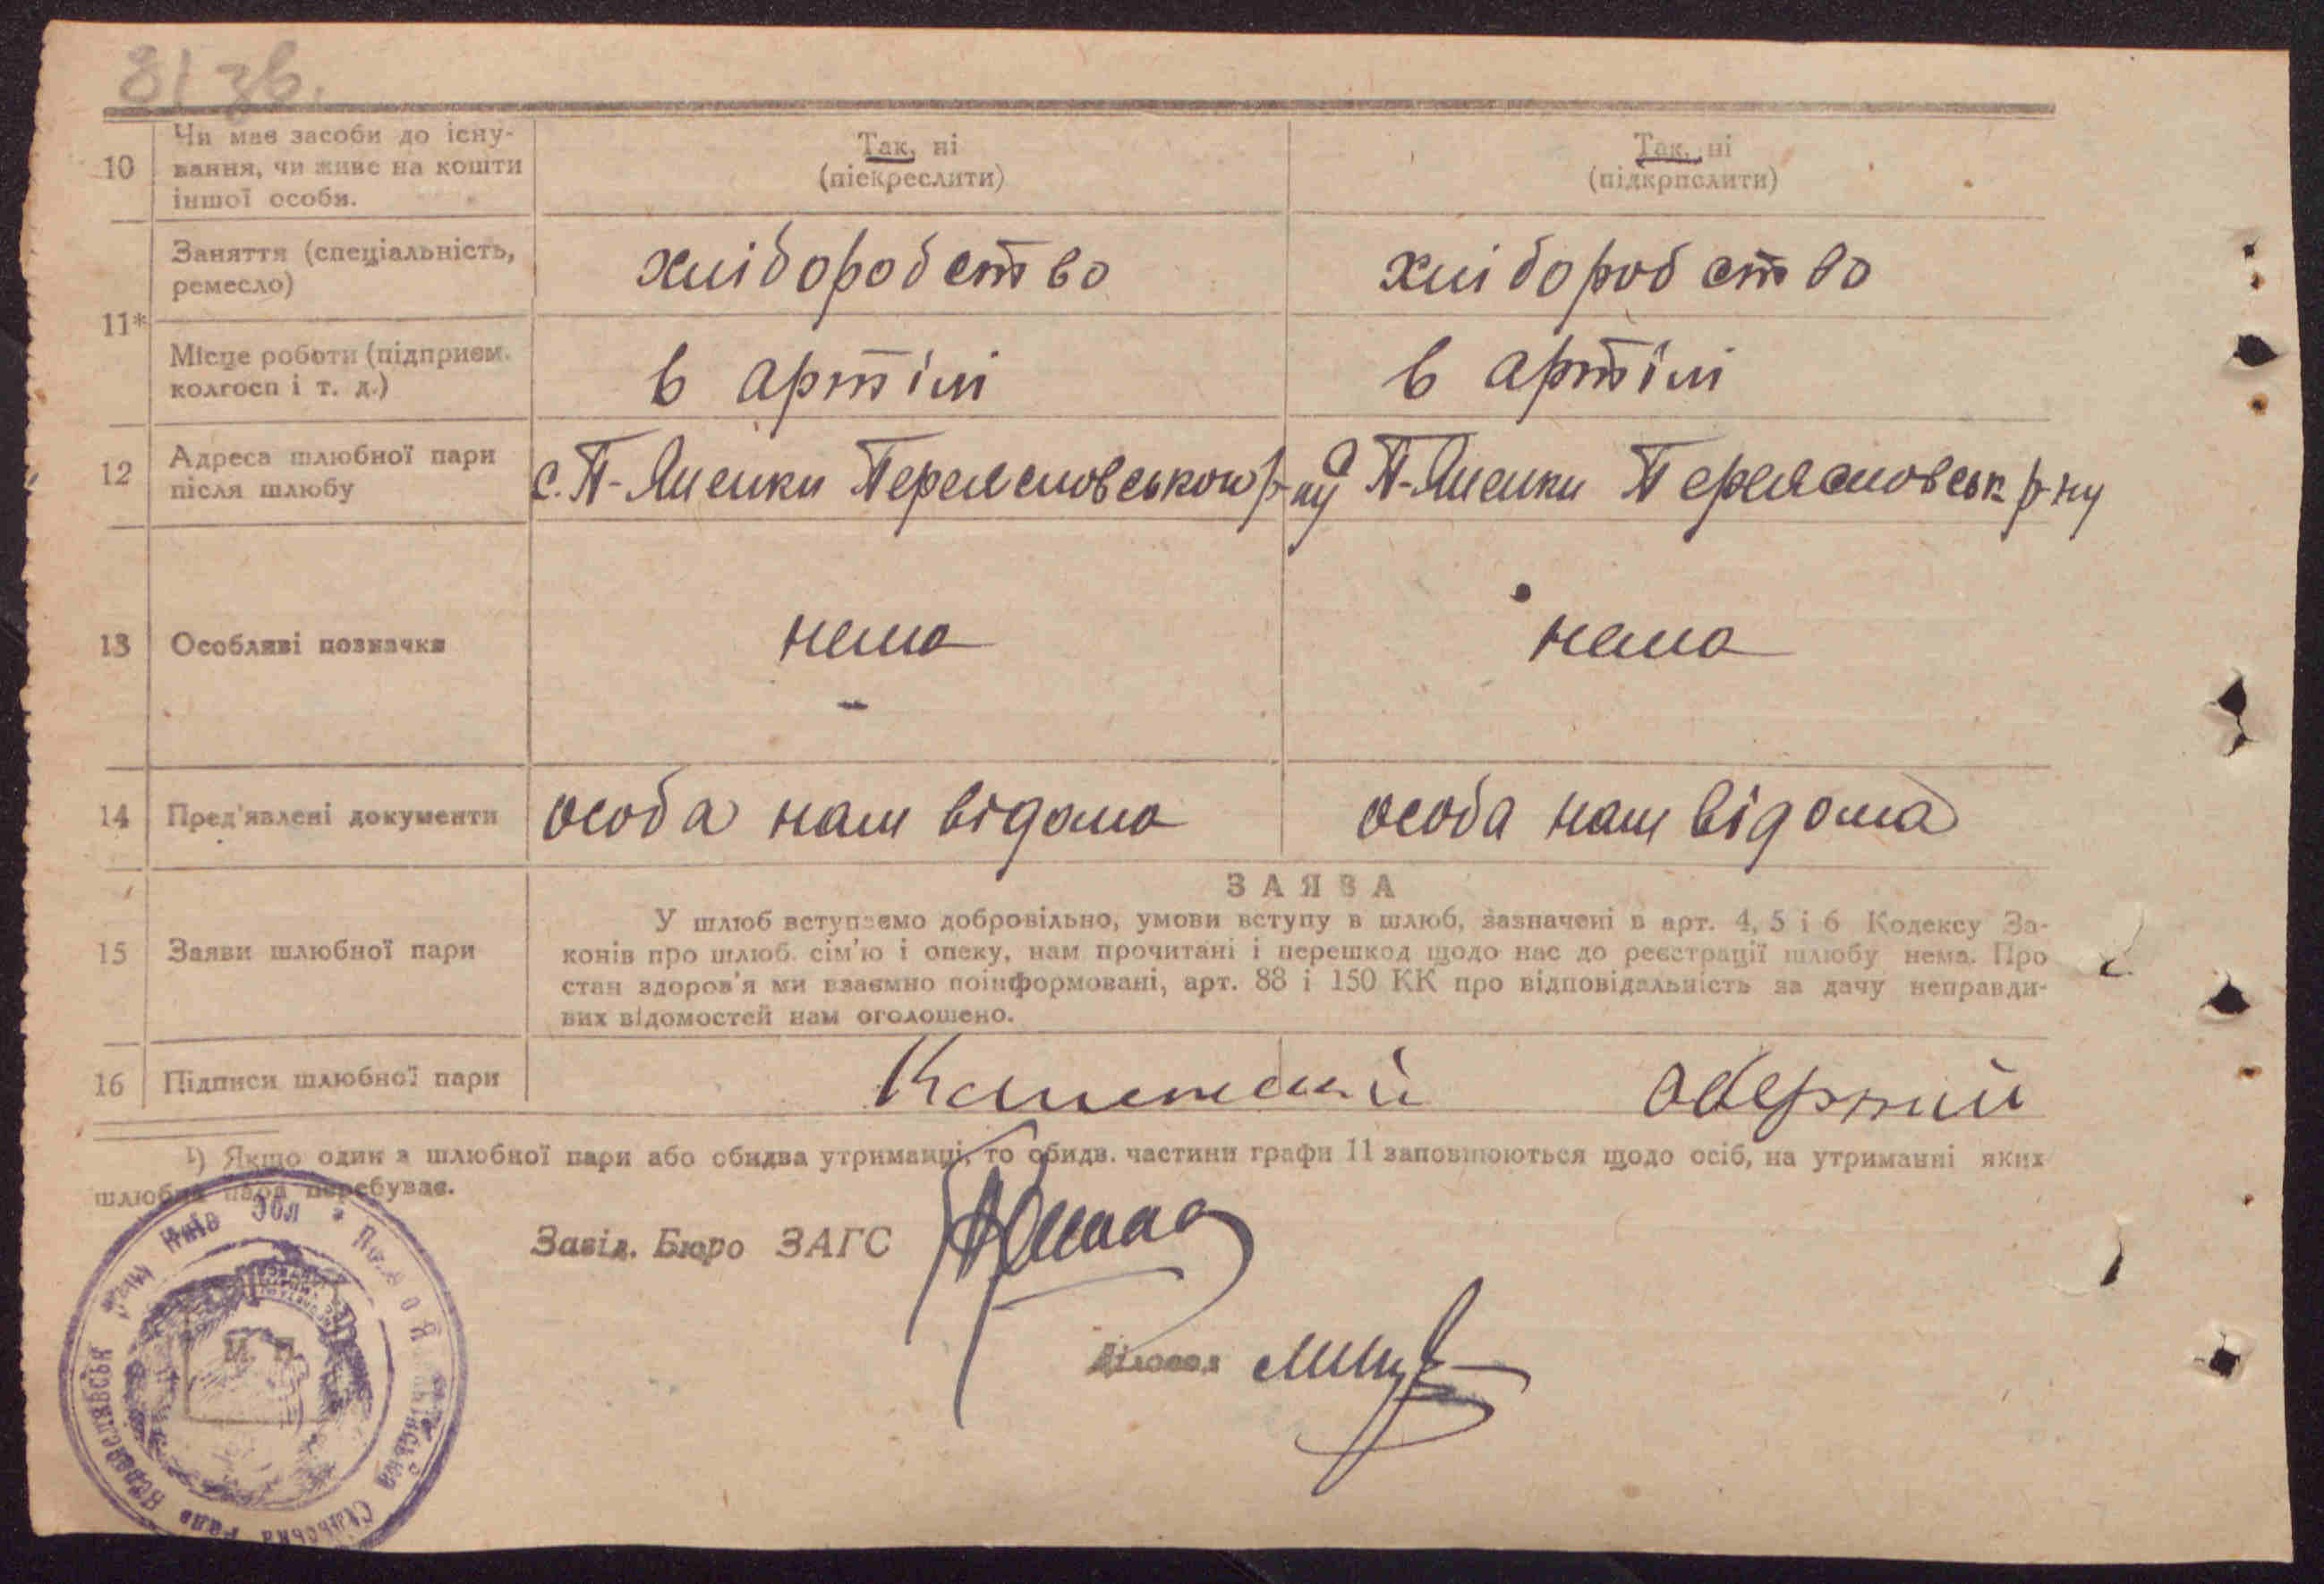 81 зв.
10
Чи має засоби до існу-
вання, чи живе на кошти
іншої особи.
Так, ні
(піекреслити)
Так, ні
(підкрпслити)
11*
Заняття (спеціальність,
ремесло)
хліборобство
хліборобство
Місце роботи (підприєм.
колгосп і т. д.)
в артілі
в артілі
12
Адреса шлюбної пари
після шлюбу
с. П- Переясловського р-ну
с П- Переясловськ р-ну
13
Особливі позначки
нема
нема
14
Пред'явлені документи
особа нам відома
особа нам відома
15
Заяви шлюбної пари
ЗАЯВА
У шлюб вступаємо добровільно, умови вступу в шлюб, зазначені в арт. 4, 5 і 6 Кодексу За-
конів про шлюб. сім'ю і опеку, нам прочитані і перешкод щодо нас до реєстрації шлюбу нема. Про
стан здоров'я ми взаємно поінформовані, арт. 88 і 150 КК про відповідальність за дачу неправди-
вих відомостей нам оголошено.
16
Підписи шлюбної пари
¹) Якщо один з шлюбної пари або обидва утриманці, то обидв. частини графи 11 заповнюються щодо осіб, на утриманні яких
шлюбна пара перебуває.
Завід. Бюро ЗАГС
Діловод
Київ Обл
Сільська Рада